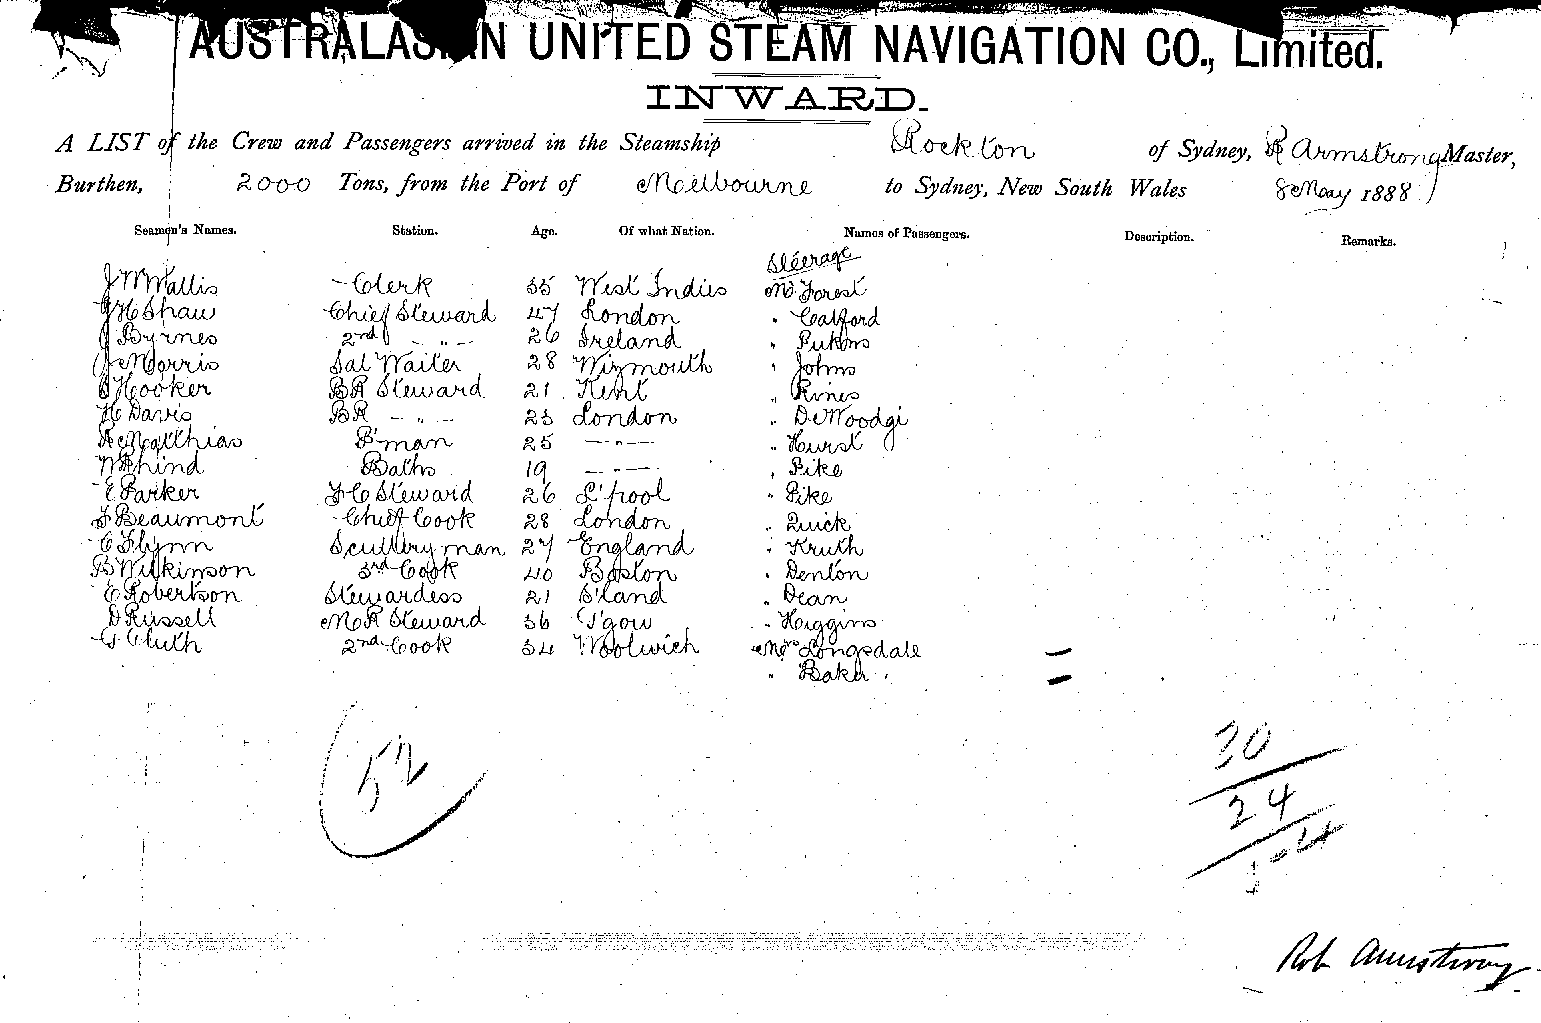 AUSTRALASIAN UNITED STEAM NAVIGATION CO., Limited.
INWARD.
A LIST of the Crew and Passengers arrived in the Steamship Rockton of Sydney, R Armstrong Master,
Burthen, 2000 Tons, from the Port of Melbourne to Sydney, New South Wales 8 May 1888
Seamen's Names. Station. Age. Of what Nation. Names of Passengers. Description. Remarks.
Steerage
J W Wallis Clerk 35 West Indies Mr Forest
J H Shaw Chief Steward 47 London " Catford
J Byrnes 2nd - " - 26 Ireland "
J Morris Sal Waiter 28 Weymouth " Johns
Hooker BR Steward 21 Kent " Rines
H Davis BR - " - 23 London " De Woodgi
Matthias P'man 25 - " - " Hurst
W Rhind Baths 19 - " - " Pike
E Parker F C Steward 26 L'pool " Pike
F Beaumont Chief Cook 28 London " Quick
C Flynn Scullery man 27 England " Kruth
B Wilkinson 3rd Cook 40 Boston " Denton
E Robertson Stewardess 21 S'land " Dean
D Russell M R Steward 36 G'gow " Higgins
G Cluth 2nd Cook 34 Woolwich Mrs Longsdale
" Baker
52
30
24
54
Rob Armstrong